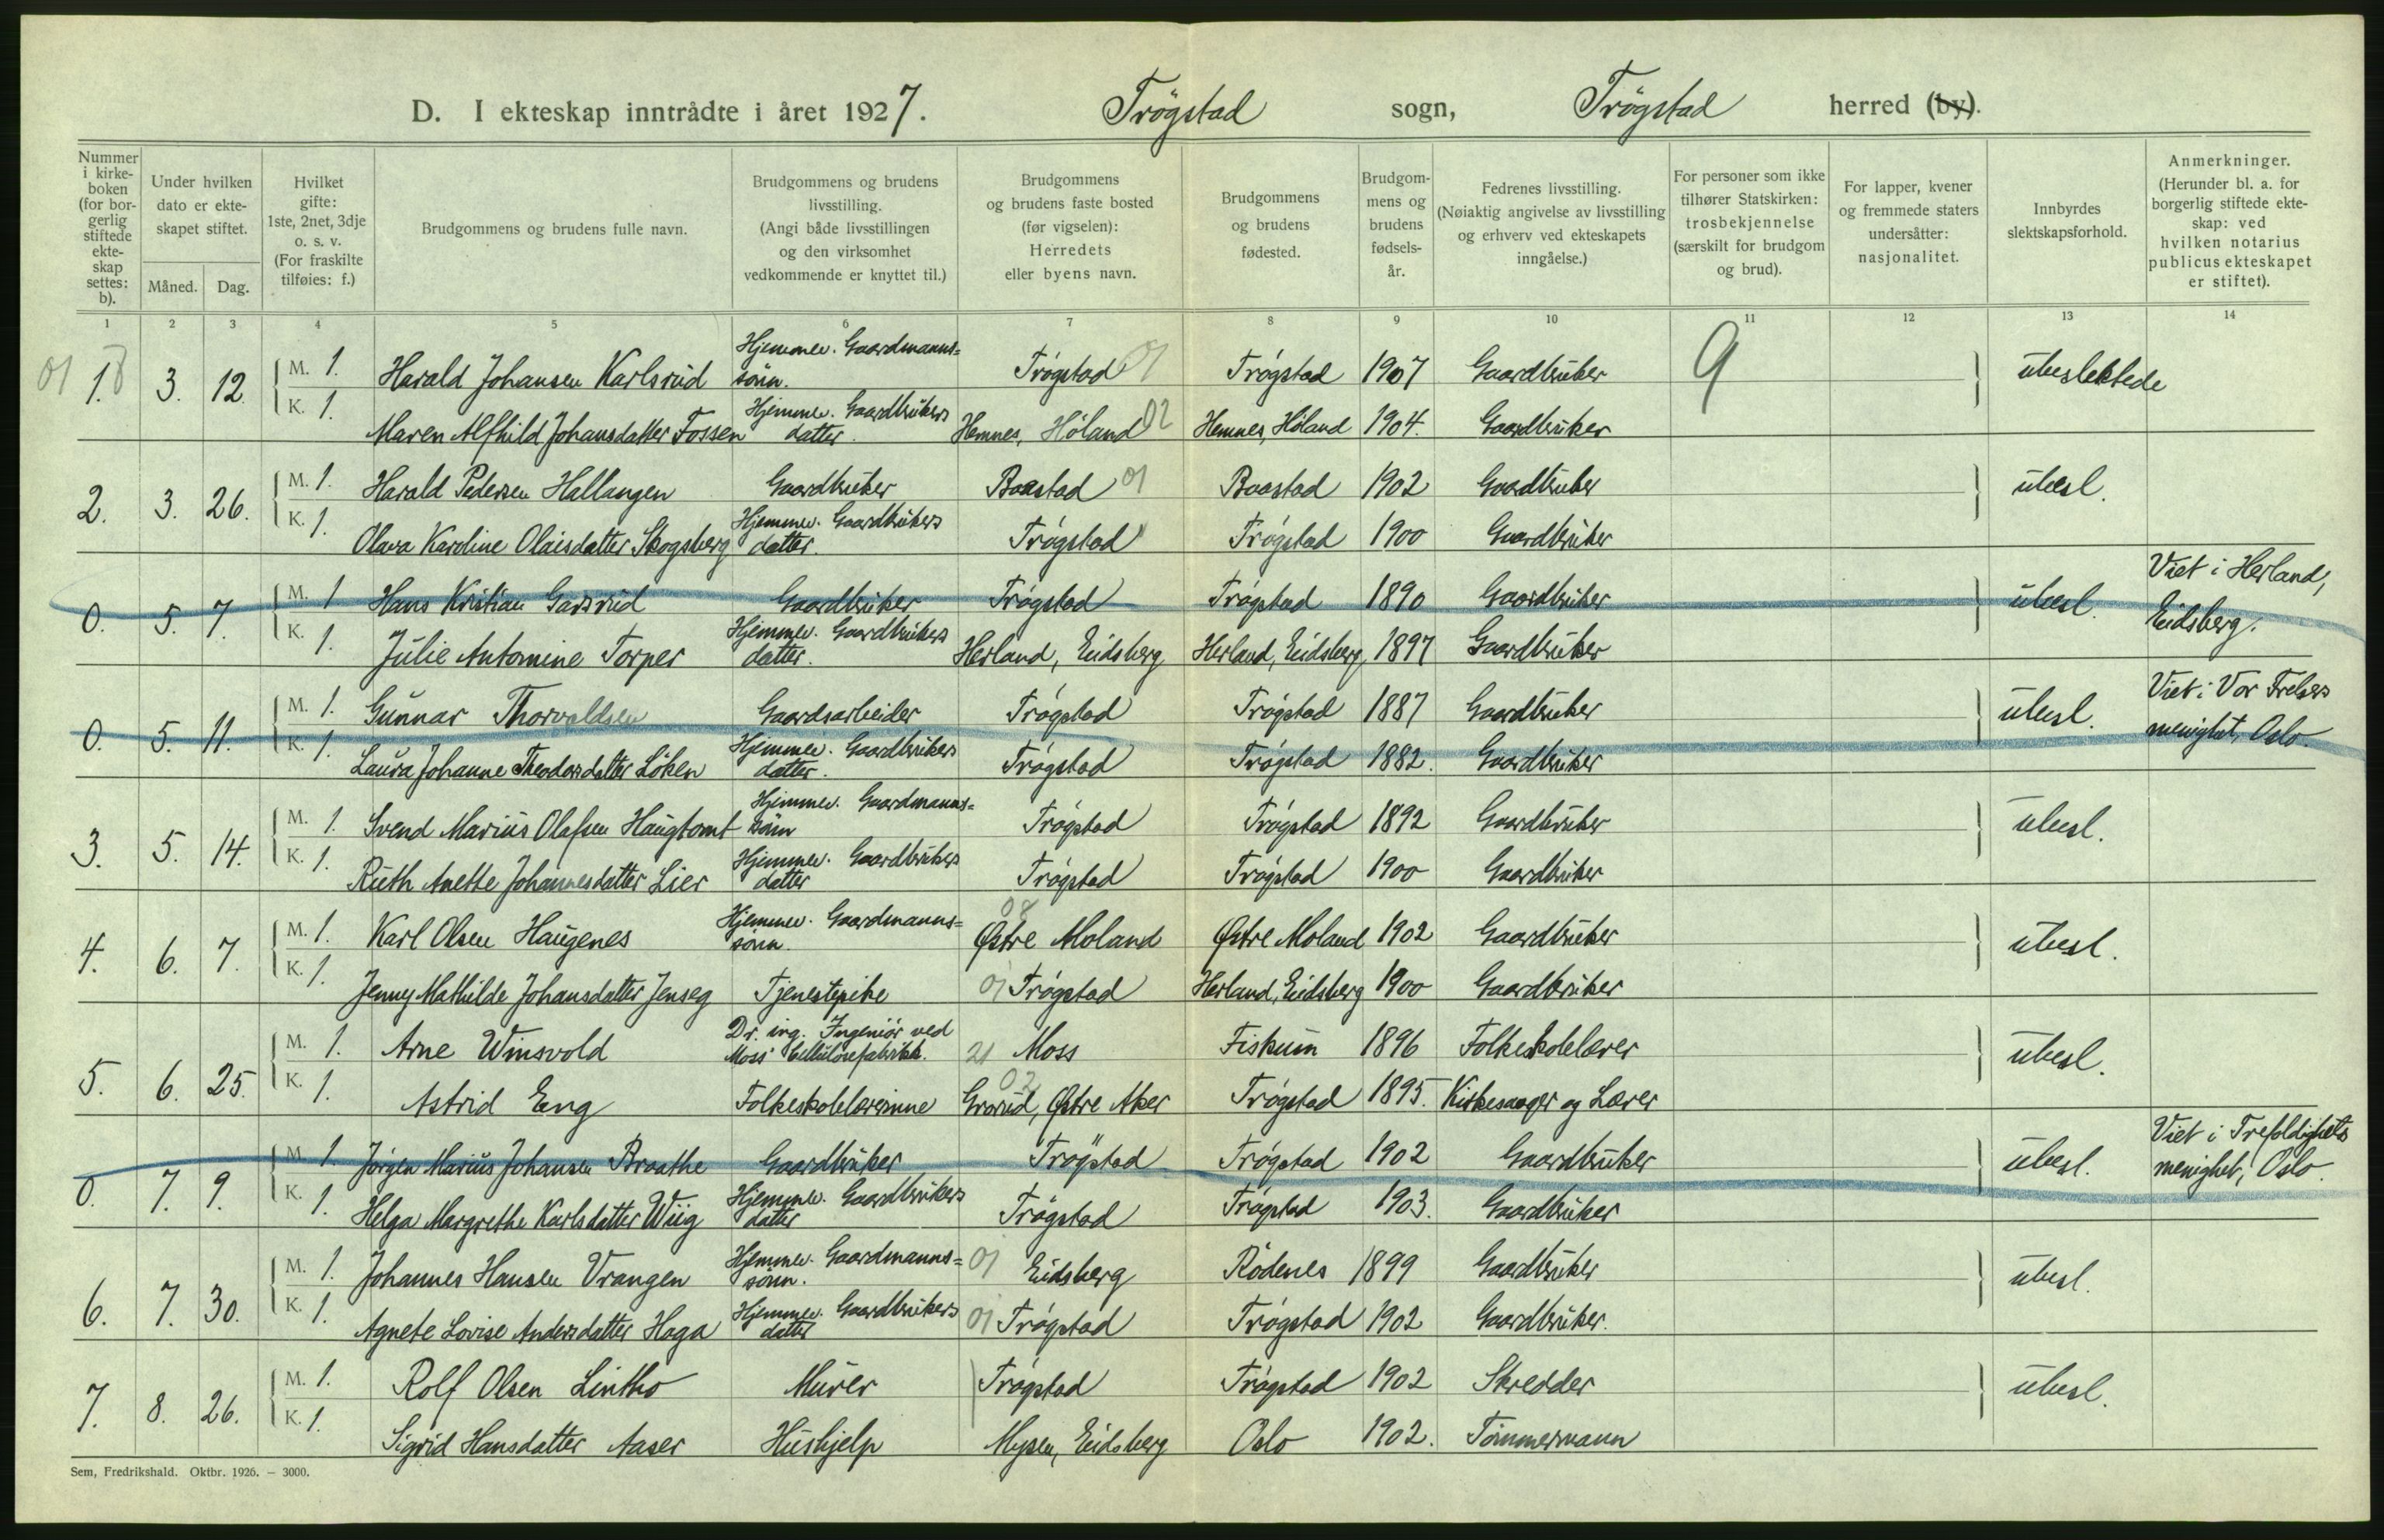 D. I ekteskap inntrådte i året 1927. Trögstad sogn, Trögstad herred (by).
Nummer i kirke-boken (for bor-gerlig stiftede ekte-skap settes: b).
Under hvilken dato er ekte-skapet stiftet.
Måned. Dag.
Hvilket gifte: 1ste, 2net, 3dje o. s. v. (For fraskilte tilføies: f.)
Brudgommens og brudens fulle navn.
Brudgommens og brudens livsstilling. (Angi både livsstillingen og den virksomhet vedkommende er knyttet til.)
Brudgommens og brudens faste bosted (før vigselen): Herredets eller byens navn.
Brudgommens og brudens fødested.
Brudgom-mens og brudens fødsels-år.
Fedrenes livsstilling. (Nøiaktig angivelse av livsstilling og erhverv ved ekteskapets inngåelse.)
For personer som ikke tilhører Statskirken: trosbekjennelse (særskilt for brudgom og brud).
For lapper, kvener og fremmede staters undersåtter: nasjonalitet.
Innbyrdes slektskapsforhold.
Anmerkninger. (Herunder bl. a. for borgerlig stiftede ekte-skap: ved hvilken notarius publicus ekteskapet er stiftet).
1 2 3 4 5 6 7 8 9 10 11 12 13 14
01 1. 3. 12. M. 1. Harald Johansen Karlsrud Hjemmev. Gaardmanns=sönn. Trögstad 01 Trögstad 1907 Gaardbruker 9 ubeslektede
K. 1. Maren Alfhild Johansdatter Fossen Hjemmev. Gaardbrukers datter. Hemnes, Höland 02 Hemnes, Höland 1904. Gaardbruker
2. 3. 26. M. 1. Harald Pedersen Hallangen Gaardbruker Baastad 01 Baastad 1902 Gaardbruker ubesl.
K. 1. Olava Karoline Olaisdatter Skogsberg Hjemmev. Gaardbrukers datter. Trögstad Trögstad 1900 Gaardbruker
0. 5. 7. M. 1 Hans Kristian Garsrud Gaardbruker Trögstad Trögstad 1890 Gaardbruker ubesl. Viet i Herland, Eidsberg.
K. 1. Julie Antomine Torper Hjemmev. Gaardbrukers datter. Herland, Eidsberg Herland, Eidsberg, 1897 Gaardbruker
0. 5. 11. M. 1. Gunnar Thorvaldsen Gaardsarbeider Trögstad Trögstad 1887 Gaardbruker ubesl. Viet i Vor Frelsers menighet, Oslo.
K. 1. Laura Johanne Theodorsdatter Löken Hjemmev. Gaardbrukers datter. Trögstad Trögstad 1882. Gaardbruker
3. 5. 14. M. 1. Svend Marius Olafsen Haugtomt Hjemmev. Gaardmanns=sönn Trögstad Trögstad 1892 Gaardbruker ubesl.
K. 1. Ruth Anette Johannesdatter Lier Hjemmev. Gaardbrukers datter Trögstad Trögstad 1900 Gaardbruker
4. 6. 7. M. 1. Karl Olsen Haugenes Hjemmev. Gaardmanns=sönn. 08 Østre Moland Østre Moland 1902 Gaardbruker ubesl.
K. 1. Jenny Mathilde Johansdatter Jenseg Tjenestepike 01 Trögstad Herland, Eidsberg 1900 Gaardbruker
5. 6. 25. M. 1. Arne Winsvold Dr. ing. Ingeniör ved Moss' Cellulosefabrikk. 21 Moss Fiskum 1896 Folkeskolelærer ubesl.
K. 1. Astrid Eng Folkeskolelærerinne 02 Grorud, Østre Aker Trögstad 1895. Kirkesanger og Lærer
0. 7. 9. M. 1. Jörgen Marius Johansen Braathe Gaardbruker Trögstad Trögstad 1902 Gaardbruker ubesl. Viet i Trefoldighets menighet, Oslo.
K. 1. Helga Margrethe Karlsdatter Wiig Hjemmev. Gaardbrukers datter Trögstad Trögstad 1903. Gaardbruker
6. 7. 30. M. 1. Johannes Hansen Vrangen Hjemmev. Gaardmanns=sönn. 01 Eidsberg Rödenes 1899 Gaardbruker ubesl.
K. 1. Agnete Lovise Andersdatter Haga Hjemmev. Gaardbrukers datter 01 Trögstad Trögstad 1902 Gaardbruker.
7. 8. 26. M. 1. Rolf Olsen Lintho Murer Trögstad Trögstad 1902 Skredder ubesl.
K. 1. Sigrid Hansdatter Aaser Hushjelp Mysen, Eidsberg Oslo 1902. Tömmermann
Sem, Fredrikshald. Oktbr. 1926. — 3000.